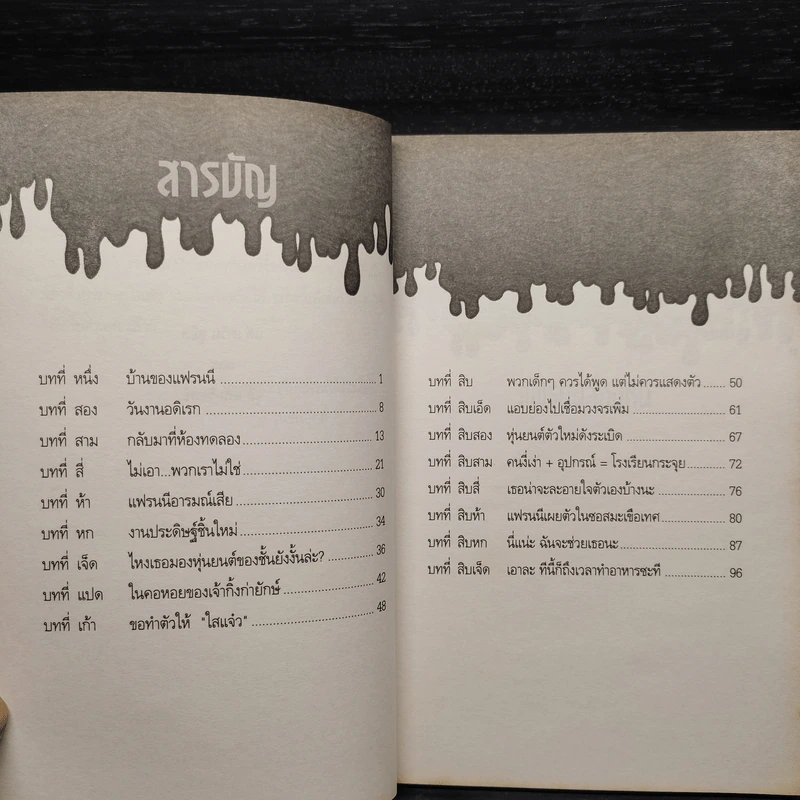 สารบัญ
บทที่ หนึ่ง บ้านของแฟรนนี ........ 1
บทที่ สอง วันงานอดิเรก ........ 8
บทที่ สาม กลับมาที่ห้องทดลอง ........ 13
บทที่ สี่ ไม่เอา...พวกเราไม่ใช่ ........ 21
บทที่ ห้า แฟรนนีอารมณ์เสีย ........ 30
บทที่ หก งานประดิษฐ์ชิ้นใหม่ ........ 34
บทที่ เจ็ด ไหงเธอมองหุ่นยนต์ของชั้นยังงั้นล่ะ? ........ 36
บทที่ แปด ในคอหอยของเจ้ากิ้งก่ายักษ์ ........ 42
บทที่ เก้า ขอทำตัวให้ "ใสแจ๋ว" ........ 48
บทที่ สิบ พวกเด็กๆ ควรได้พูด แต่ไม่ควรแสดงตัว ........ 50
บทที่ สิบเอ็ด แอบย่องไปเชื่อมวงจรเพิ่ม ........ 61
บทที่ สิบสอง หุ่นยนต์ตัวใหม่ดังระเบิด ........ 67
บทที่ สิบสาม คนงี่เง่า + อุปกรณ์ = โรงเรียนกระจุย ........ 72
บทที่ สิบสี่ เธอน่าจะละอายใจตัวเองบ้างนะ ........ 76
บทที่ สิบห้า แฟรนนีเผยตัวในซอสมะเขือเทศ ........ 80
บทที่ สิบหก นี่แน่ะ ฉันจะช่วยเธอนะ ........ 87
บทที่ สิบเจ็ด เอาละ ทีนี้ก็ถึงเวลาทำอาหารซะที ........ 96